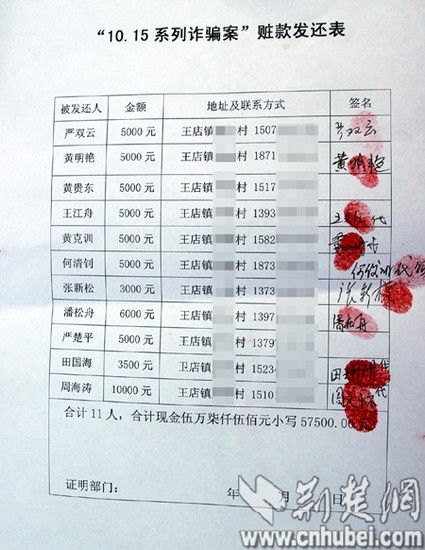 “10.15系列诈骗案”赃款发还表
被发还人 金额 地址及联系方式 签名
严双云 5000元 王店镇 村 1507 严双云
黄明艳 5000元 王店镇 村 1871 黄明艳
黄贵东 5000元 王店镇 村 1517
王江舟 5000元 王店镇 村 1393 代
黄克训 5000元 王店镇 村 1582
何清钊 5000元 王店镇 村 1873
张新松 3000元 王店镇 村 1373 张新松
潘松舟 6000元 王店镇 村 1397 潘松舟
严楚平 5000元 王店镇 村 1379
田国海 3500元 卫店镇 村 1523 田
周海涛 10000元 王店镇 村 1510 周 代
合计11人，合计现金伍万柒仟伍佰元小写57500.00
证明部门： 年 月 日
荆楚網
www.cnhubei.com